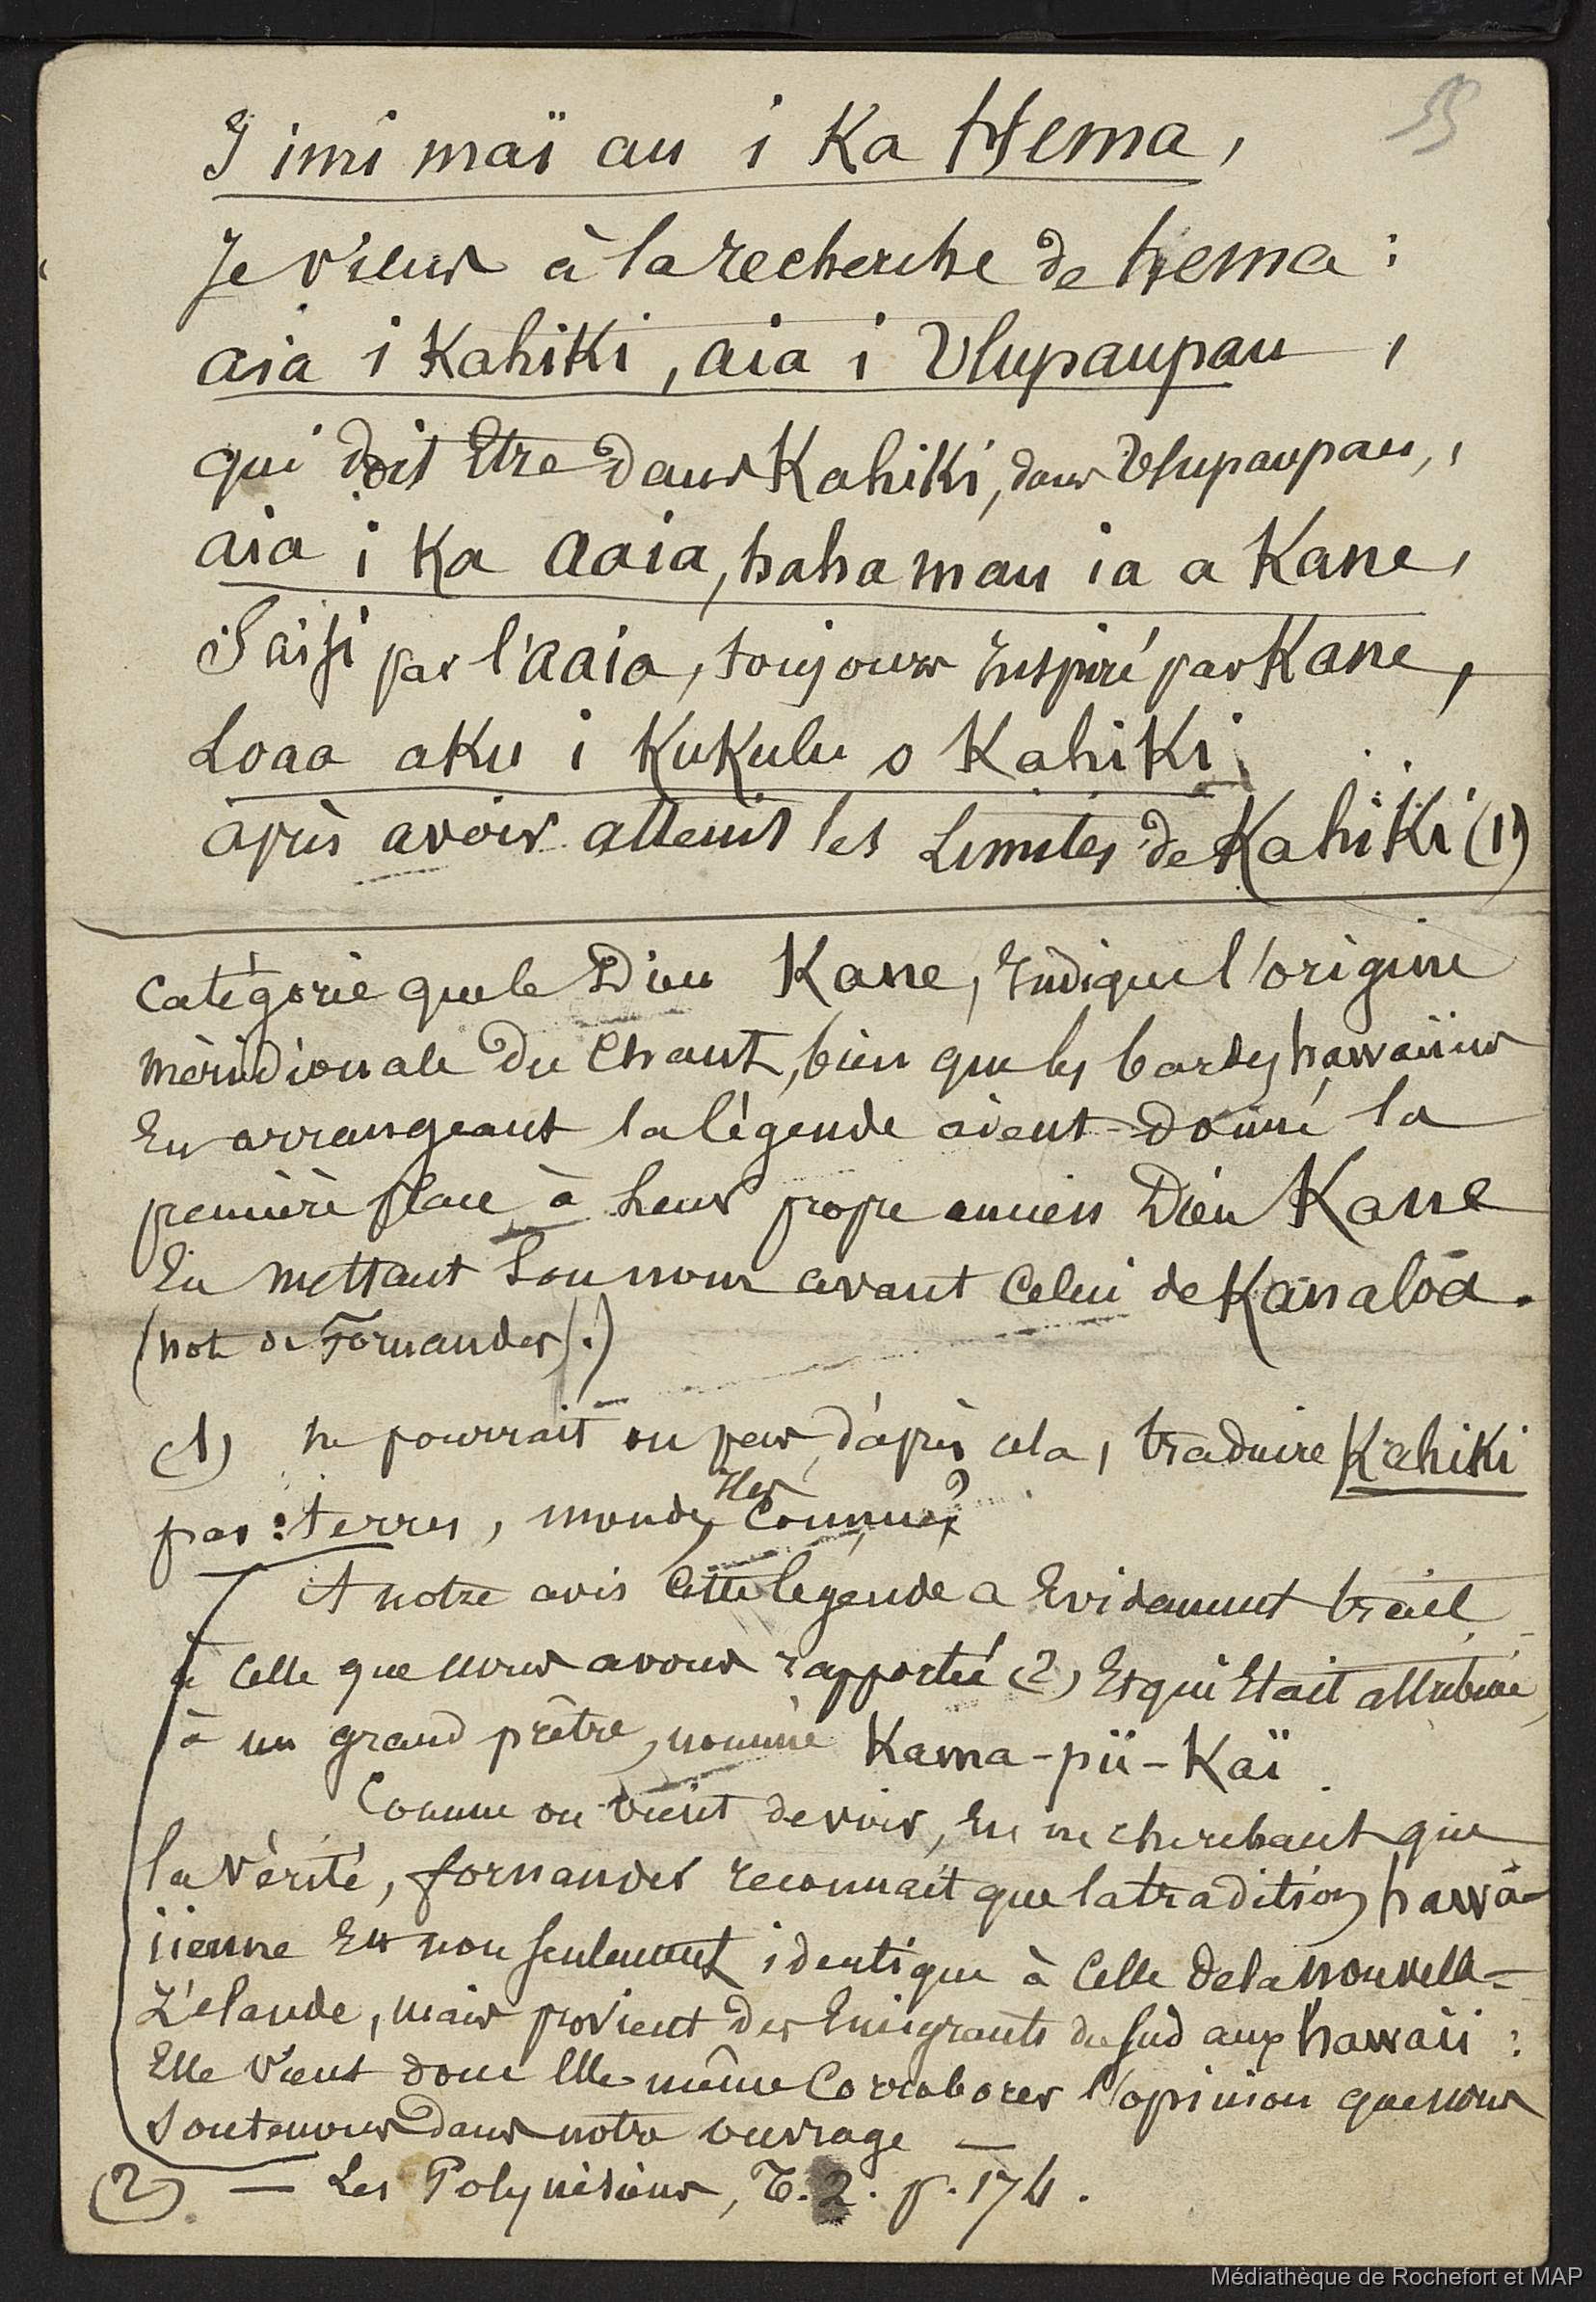 55
I imi maï au i Ka Hema,
Je viens à la recherche de hema :
aia i KahiKi, aia i Ulupaupau,
qui doit Etre dans KahiKi, dans Ulupaupau,,
aia i Ka aaia, haha mau ia a Kane,
Saisi par l'aaia, toujours Inspiré par Kane,
Loaa aKu i KuKulu o KahiKi.
après avoir atteint les Limites de KahiKi (1)
Catégorie que le Dieu Kane, Indique l'origine
méridionale du Chant, bien que les bardes hawaiiens
En arrangeant la légende aient donné la
première place à Leur propre ancien Dieu Kane
En mettant Son nom avant Celui de Kanaloa.
(note de Fornander.)
(1) ne pourrait on pas, d'après cela, traduire KahiKi
par : terres, mondes, Iles Connues?
A notre avis Cette legende a Evidemment trait
à Celle que nous avons rapportée (2) Et qui Etait attribuée
à un grand prêtre, nommé Kama-pii-Kaï.
Comme on vient de voir, En ne cherchant que
la vérité, fornander reconnait que la tradition hawa-
iienne Est non seulement identique à Celle de la nouvelle-
Zélande, mais provient des Emigrants du Sud aux hawaii :
Elle vient donc Elle-même Corroborer l'opinion que nous
Soutenons dans notre ouvrage —
(2) — Les Polynésiens, T. 2. p. 174.
Médiathèque de Rochefort et MAP